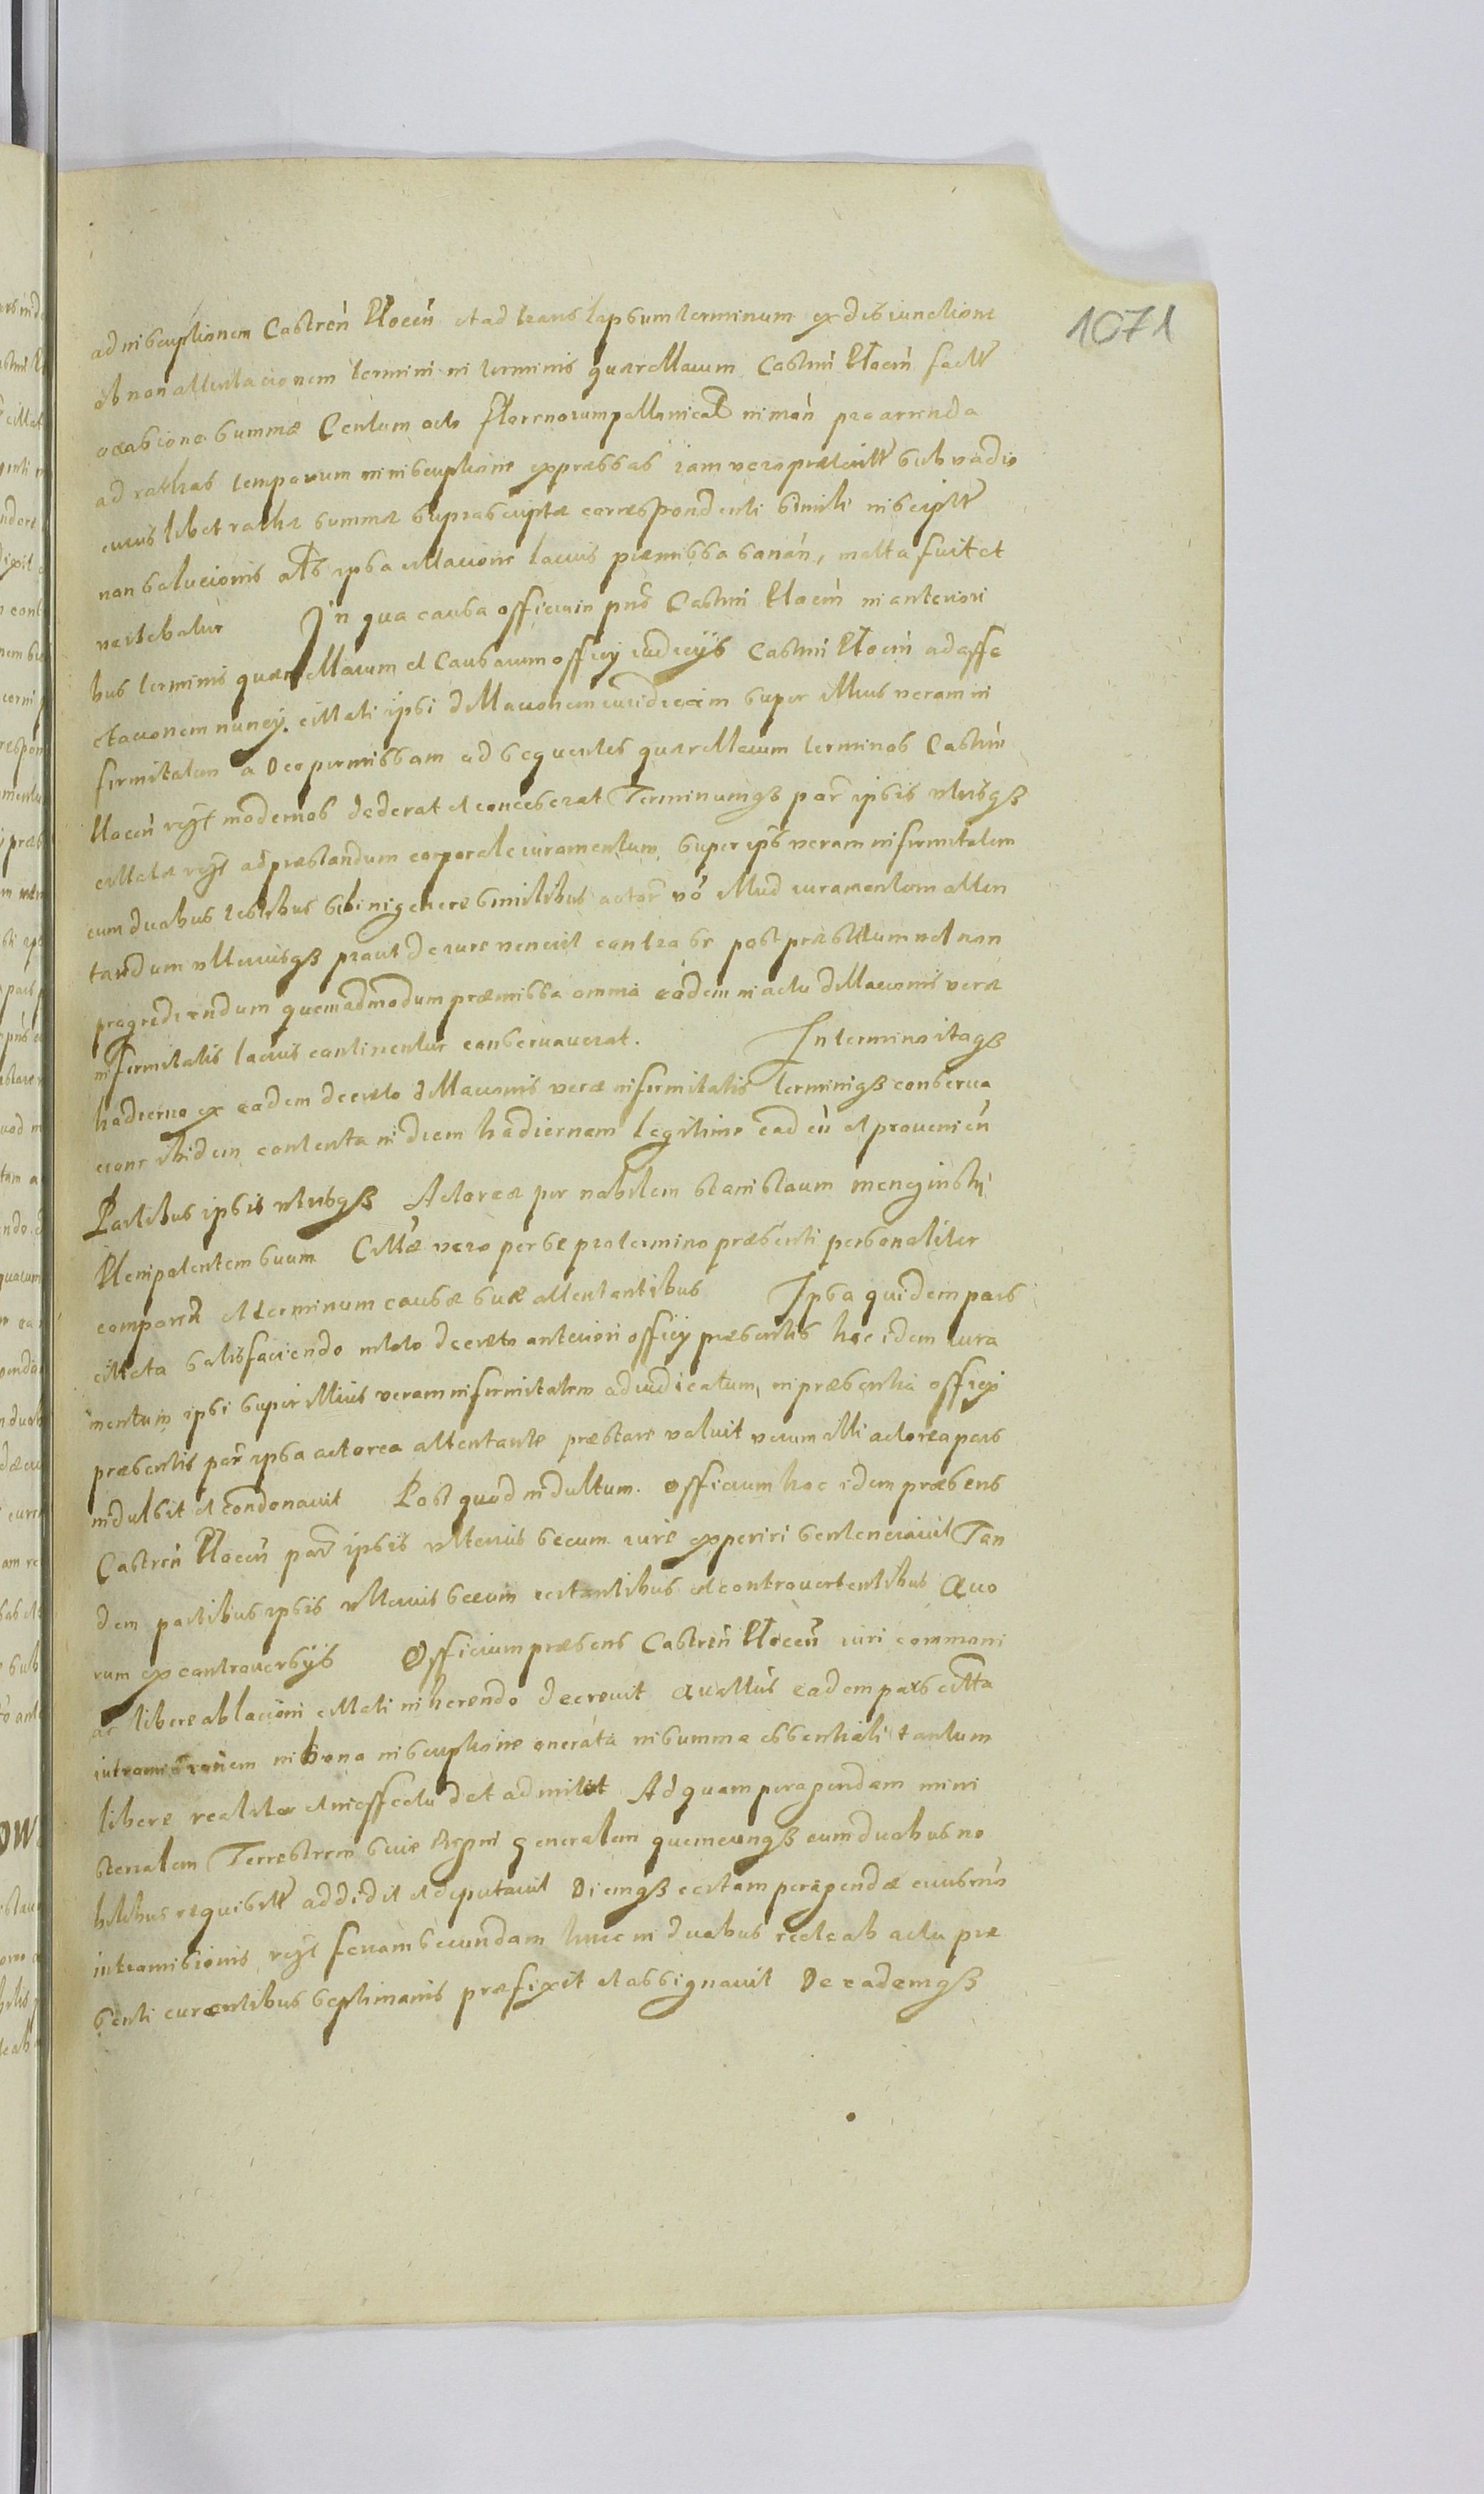 1071
ad inscriptionem Castren̄ Płocen̄ et ad translapsum terminum ex disiunctione
ob non attentacionem termini in terminis quaerellarum Castrn̄ Płocen̄ factt
occasione summae Centum octo florenorum pollonicał in mon̄ pro arrenda
ad rathas temporum in inscriptione expressas iam vero praeteritt sub vadio
cuius libet rathae summae suprascriptae correspondenti simili inscriptt
non solucionis als ipsa cittacione lacius praemissa sonan̄, motta fuit et
vertebatur In qua causa officium pns̄ Castrn̄ Płocen̄ in anteriori
bus terminis quaerellarum et Causarum officy iudicijs Castrn̄ Płocen̄ ad affe
ctacionem nuncy. cittati ipsi dillacionem iuridicam super illius veram in
firmitatem a Deo permissam ad sequentes quaerellarum terminos Castrn̄
Płocen̄ vigt modernos dederat et concesserat Terminumqȝ par ipsis utrisqȝ
cittatae vigt ad praestandum corporale iuramentum super ips̄ veram infirmitatem
cum duobus testibus sibi in genere similibus actor vō illud iuramentum atten
tandum ulteriusqȝ prout de iure venerit contra se post praestitum vel non
progrediendum quemadmodum praemissa omnia eodem in actu dillacionis verae
infirmitatis lacius continentur conservaverat. In termino itaqȝ
hodierno ex eodem decreto dillacionis verae infirmitatis terminiqȝ conserva
cione ibidem contenta in diem hodiernam legitime caden̄ et provenien̄
Partibus ipsis utrisqȝ Actorea per nobilem Stanislaum
Plenipotentem suum Citta vero per se pro termino praesenti personaliter
comparen̄ et terminum causae suae attentantibus Ipsa quidem pars
cittata satisfaciendo decreto anteriori officy praesentis hoc idem iura
mentum ipsi super illius veram infirmitatem adiudicatum, in praesentia officy
praesentis par ipsa actorea attentante praestare voluit verum illi actorea pars
indulsit et condonavit Post quod indultum. Officium hoc idem praesens
Castren̄ Płocen̄ par ipsis ulterius secum iure experiri sentenciavit Tan
dem partibus ipsis ulterius secum certantibus et controvertentibus Quo
rum ex controversijs Officium praesens Castren̄ Płocen̄ iuri communi
ac libere ablacioni cittati inherendo decrevit Quattus eadem pars citta
intromissionem in bona inscriptione onerata in summa essentiali tantum
libere realiter et in effectu det admitat Ad quam peragendam mini
sterialem Terrestrem sive Regni generalem quemcunqȝ cum duobus no
bilibus requisitt addidit et deputavit Diemqȝ certam peragendae eiusmō
intromisionis vigt feriam secundam hinc in duabus recte ab actu prae
senti curentibus septimanis praefixit et assignavit De eademqȝ